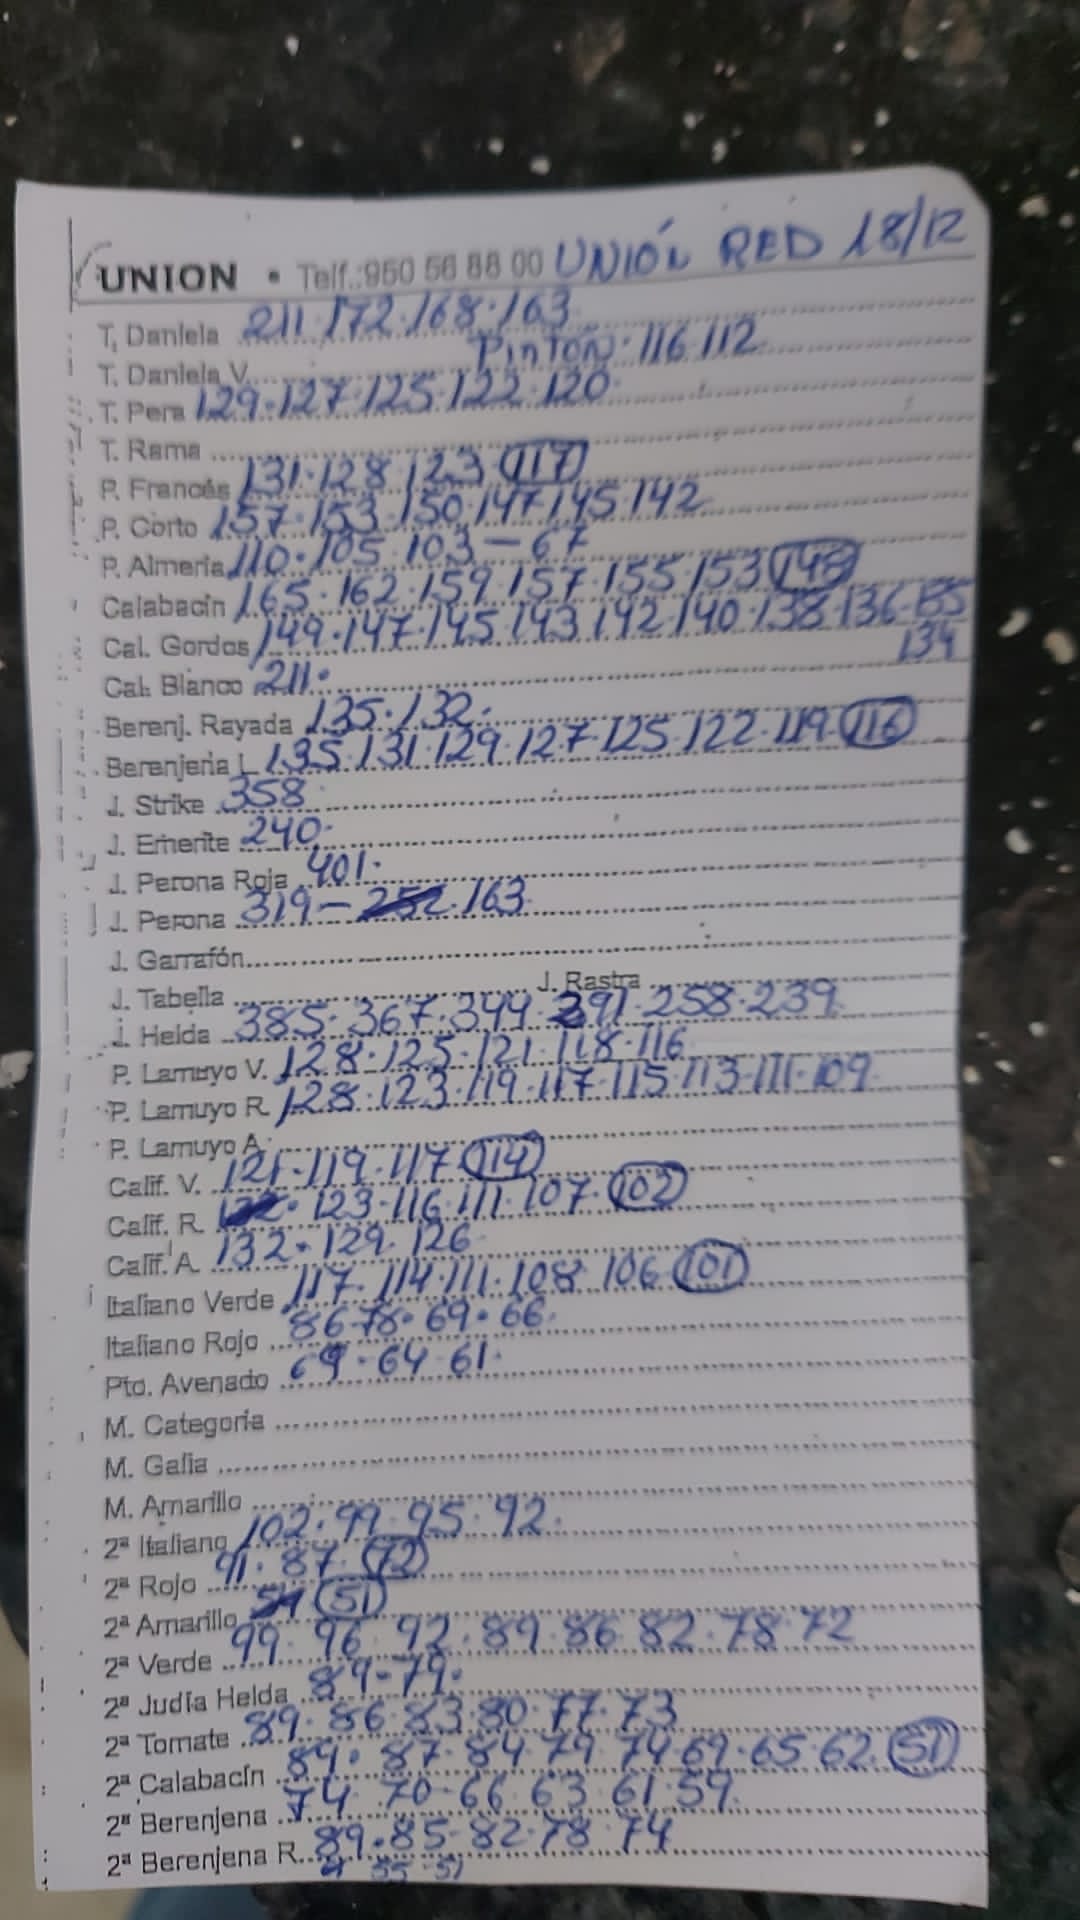 UNION • Telf.:950 56 88 00 UNIÓN RED 18/12
T. Daniela 211·172·168·163
T. Daniela V. PINTÓN·116·112
T. Pera 129·127·125·122·120
T. Rama
P. Francés 131·128·123 117
P. Corto 157·153·150·147·145·142
P. Almería 110·105·103–67
Calabacín 165·162·159·157·155·153 148
Cal. Gordos 149·147·145·143·142·140·138·136·135
134
Cal. Blanco 211·
Berenj. Rayada 135·132·
Berenjena L. 135·131·129·127·125·122·119·116
J. Strike 358
J. Emerite 240·
J. Perona Roja 401·
J. Perona 319– 163
J. Garrafón
J. Tabella J. Rastra
J. Helda 385·367·344·291·258·239
P. Lamuyo V. 128·125·121·118·116
P. Lamuyo R. 128·123·119·117·115·113·111·109
P. Lamuyo A.
Calif. V. 121·119·117 114
Calif. R. 123·116·111·107· 102
Calif. A. 132·129·126
Italiano Verde 117·114·111·108·106 101
Italiano Rojo 86·78·69·66·
Pto. Avenado 69·64·61·
M. Categoría
M. Galia
M. Amarillo
2ª Italiano 102·99·95·92·
2ª Rojo 91·87· 72
2ª Amarillo 51
2ª Verde 99·96·92·89·86·82·78·72
2ª Judía Helda 89·79·
2ª Tomate 89·86·83·80·77·73
2ª Calabacín 89·87·84·79·74·69·65·62· 51
2ª Berenjena 74·70·66·63·61·59
2ª Berenjena R. 89·85·82·78·74
55·51